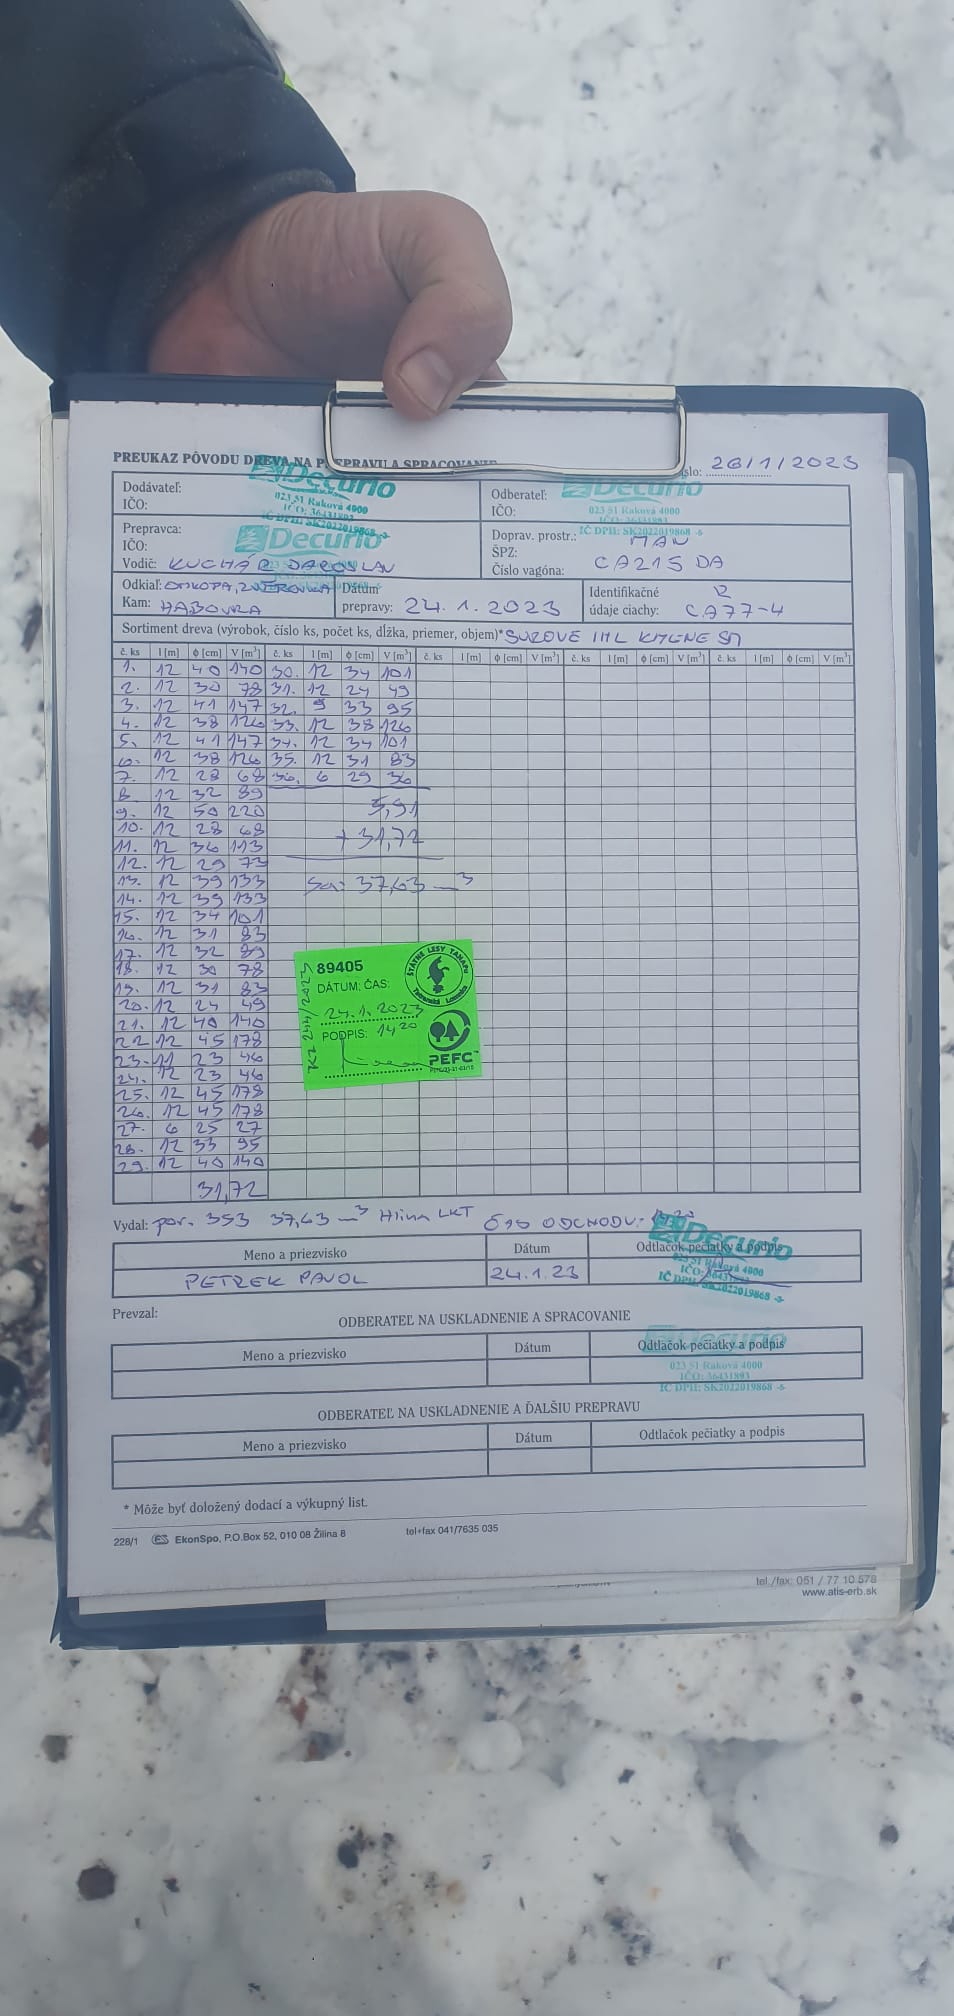 PREUKAZ PÔVODU DREVA NA PREPRAVU A SPRACOVANIE
26/1/2023
Decurio
023 51 Raková 4000
IČO: 36431893
IČ DPH: SK2022019868 -5-
Dodávateľ:
IČO:
Odberateľ:
IČO:
Decurio
023 51 Raková 4000
IČ DPH: SK2022019868 -5-
Prepravca:
IČO:
Decurio
Vodič: KUCHÁR
Doprav. prostr.: MAN
ŠPZ:
Číslo vagóna: CA215 DA
Odkiaľ:
Kam: HABOVKA
Dátum
prepravy: 24.1.2023
Identifikačné
údaje ciachy: CA77-4
Sortiment dreva (výrobok, číslo ks, počet ks, dĺžka, priemer, objem)*
č. ks l [m] ϕ [cm] V [m³] č. ks l [m] ϕ [cm] V [m³] č. ks l [m] ϕ [cm] V [m³] č. ks l [m] ϕ [cm] V [m³] č. ks l [m] ϕ [cm] V [m³]
1. 12 40 140 30. 12 34 101
2. 12 30 78 31. 12 24 49
3. 12 41 147 32. 9 33 95
4. 12 38 126 33. 12 38 126
5. 12 41 147 34. 12 34 101
6. 12 38 126 35. 12 31 83
7. 12 28 68 36. 6 29 36
8. 12 32 89
9. 12 50 220 5,91
10. 12 28 68
11. 12 36 113 + 31,72
12. 12 29 73
13. 12 39 133 37,63 m³
14. 12 39 133
15. 12 34 101
16. 12 31 83
17. 12 32 89
18. 12 30 78
19. 12 31 83
20. 12 24 49
21. 12 40 140
22. 12 45 178
23. 11 23 46
24. 12 23 46
25. 12 45 178
26. 12 45 178
27. 6 25 27
28. 12 33 95
29. 12 40 140
31,72
89405
DÁTUM: ČAS:
24.1.2023
PODPIS: 14 20
ŠTÁTNE LESY TANAPu
Tatranská Lomnica
PEFC
Vydal: por. 353 37,63 m³ Hlina LKT ČAS ODCHODU:
Meno a priezvisko Dátum Odtlačok pečiatky a podpis
PETREK PAVOL 24.1.23
Decurio
023 51 Raková 4000
IČO: 36431893
IČ DPH: SK2022019868 -5-
Prevzal:
ODBERATEĽ NA USKLADNENIE A SPRACOVANIE
Meno a priezvisko Dátum Odtlačok pečiatky a podpis
Decurio
023 51 Raková 4000
IČO: 36431893
IČ DPH: SK2022019868 -5-
ODBERATEĽ NA USKLADNENIE A ĎALŠIU PREPRAVU
Meno a priezvisko Dátum Odtlačok pečiatky a podpis
* Môže byť doložený dodací a výkupný list.
228/1 ES EkonSpo, P.O.Box 52, 010 08 Žilina 8 tel+fax 041/7635 035
tel./fax: 051 / 77 10 578
www.atis-erb.sk